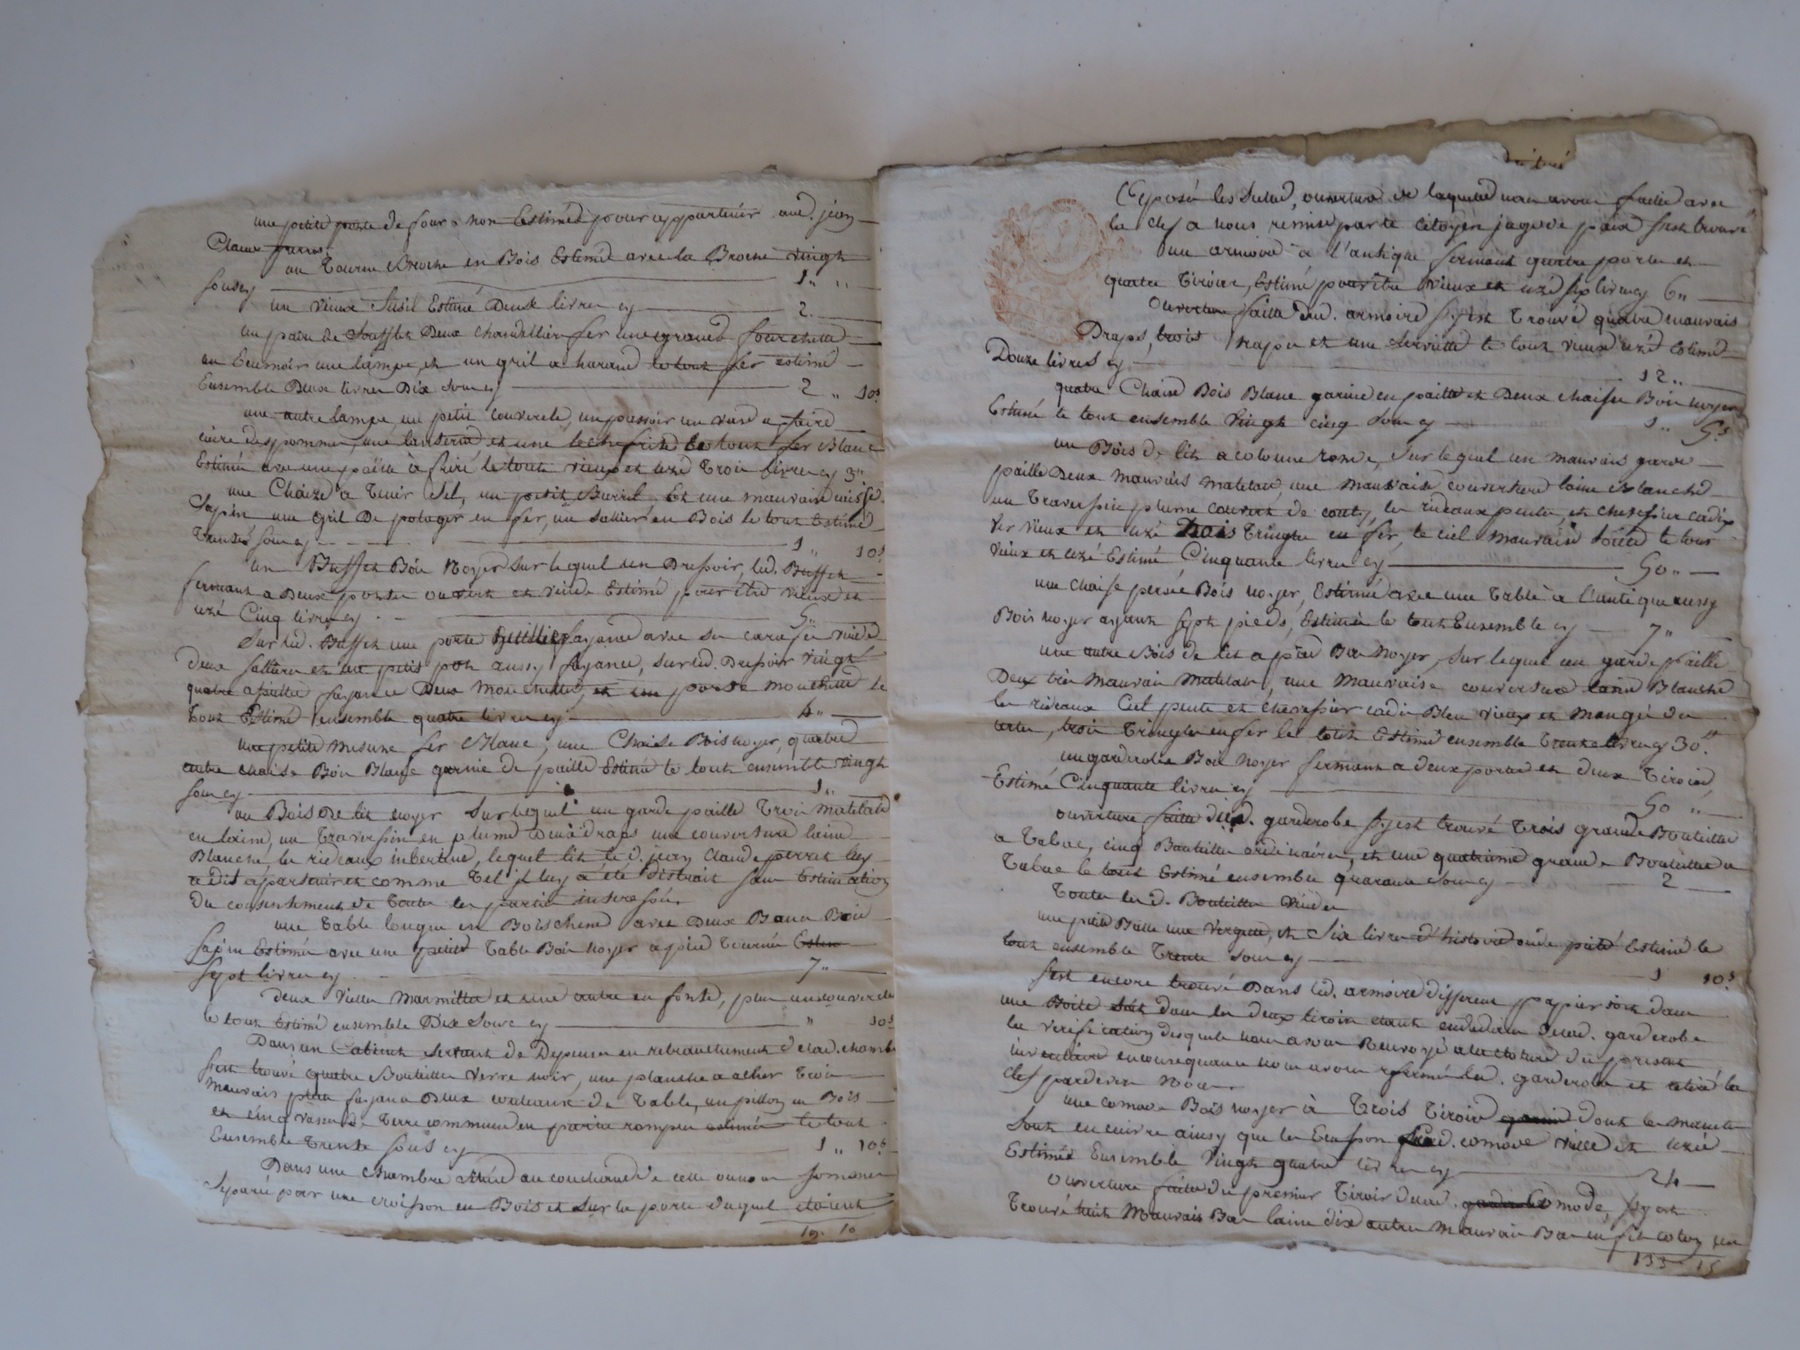 une petite porte de four non Estimée pour appartenir aud. jean
Claude
un Tourne Broche en Bois Estimé avec la Broche vingt
sous cy 1,, ,,
un vieux fusil Estimé Deux livres cy 2.
un paire de Soufflet Deux chandellier fer une grande fourchette
un Ecumoir une lampe, et un gril a harand le tout fer estimé
Ensemble Deux livres Dix sous cy 2 ,, 10s
une autre lampe un petit couvercle, un passoir un vase a faire
cuire des pommes, une lanterne et une lechefrite le tout fer Blanc
Estimé avec une paële à friré le tout vieux et uzé Trois livres cy 3"
une Chaize a Tenir Sel, un petit Barril Et une mauvaise caisse
Sapin une Gril De potager en fer, un Sallier en Bois le tout Estimé
Trente sous cy 1 ,, 10s
un Buffet Bois Noyer sur lequel un Dressoir, led. Buffet
fermant a Deux portes ouvert et vuide Estimé pour être vieux et
uzé Cinq livres cy 5"
Sur led. Buffet une porte huillier fayance avec ses carafes vuide
deux Sallieres et un petit pot aussy fayance, sur led. Dressoir vingt
quatre assiettes fayance Deux Mouchettes, et un porte mouchette le
tout Estimé ensemble quatre livres cy 4"
une petite mesure fer Blanc, une Chaise Bois noyer, quatre
autre chaise Bois Blanc garnie de paille Estimé le tout ensemble vingt
sous cy 1"
un Bois de lit noyer sur lequel un garde paille Trois matelats
en laine, un Traversin en plume deux draps une couverture laine
Blanche, les rideaux indienne, lequel lit led. jean Claude luy
a dit appartenir et comme Tel il luy a été distrait sans Estimation
du consentement de Toutes les parties interessées.
une Table longue en Bois chene avec Deux Bancs Bois
Sapin Estimée avec une petite Table Bois noyer a pied Tournés
Sept livres cy 7"
deux vielles Marmittes et une autre en fonte, plus un couvercle
le tout Estimé ensemble Dix Sous cy " 10s
Dans un Cabinet servant de Depense en retranchement de lad. chambre
s'est trouvé quatre Bouteilles verre noir, une planche a acher Trois
Mauvais plats fayance Deux couteaux de Table, un pillon en Bois
et cinq vases de Terre commune en partie rompus estimés le tout
Ensemble Trente Sous cy 1 ,, 10s
Dans une chambre située au couchant de celle ou nous sommes
Separée par une cloison en Bois et sur la porte duquel étoient
19. 10
Exposé les Scellés, ouverture de laquelle nous avons faitte avec
la clef a nous remise par le Citoyen juge de paix s'est trouvé
une armoire à l'antique fermant quatre portes et
quatre Tiroirs, Estimé pour être vieux et uzé six livres cy 6"
Ouverture faitte dud. armoire s'y est Trouvé quatre mauvais
Draps, trois napes et une serviette le tout vieux uzé Estimé
Douze livres cy 12"
quatre Chaises Bois Blanc garnies en paille et Deux chaises Bois noyer
Estimé le tout ensemble vingt cinq sous cy 1" 5s
un Bois de lit a colonne ronde, sur lequel un mauvais garde
paille Deux mauvais matelats, une mauvaise couverture laine Blanche
un Traversin plume couvert de coutil, les rideaux pente, et chevessier cadis
ver vieux et uzé Trois Tringles en fer, le ciel mauvaise le tout
vieux et uzé Estimé Cinquante livres cy 50"
une chaise persée Bois noyer, Estimé avec une Table à l'antique aussy
Bois noyer ayant sept pieds, Estimés le tout Ensemble cy 7"
une autre Bois de lit a pied Bois Noyer, sur lequel un garde paille
Deux très Mauvais Matelats, une Mauvaise couverture laine Blanche
les rideaux Ciel pente et chevessier cadis Bleu vieux et mangé des
artes, trois Tringles en fer le tout Estimé ensemble Trente livres cy 30"
un garderobe Bois Noyer fermant a deux portes et deux Tiroirs,
Estimé Cinquante livres cy 50 "
ouverture faitte dud. garderobe s'y est trouvé Trois grandes Bouteilles
a Tabac, cinq Bouteilles ordinaires, et une quatrieme grande Bouteille a
Tabac le tout Estimé ensemble quarante sous cy 2
Toutes lesd. Bouteilles vuides
une petite une Vergette, et Six livres d'histoire ou de pieté Estimé le
tout ensemble Trente Sous cy 1 10s
s'est encore trouvé Dans led. armoire different pappier soit dans
une Boite Soit dans les deux tiroirs etant audedans dud. garderobe
la verification desquels nous avons Renvoyé a la cloture du present
inventaire en consequence nous avons refermé led. garderobe et retiré la
clef pardevers Nous.
une comode Bois noyer à Trois Tiroirs dont les mains
Sont en cuivre ainsy que les Ecusson lad. comode vielle et uzée
Estimée Ensemble vingt quatre livres cy 24
Ouverture faitte du premier Tiroir de lad. comode, s'y est
Trouvé huit Mauvais Bas laine dix autres Mauvais Bas en fil coton